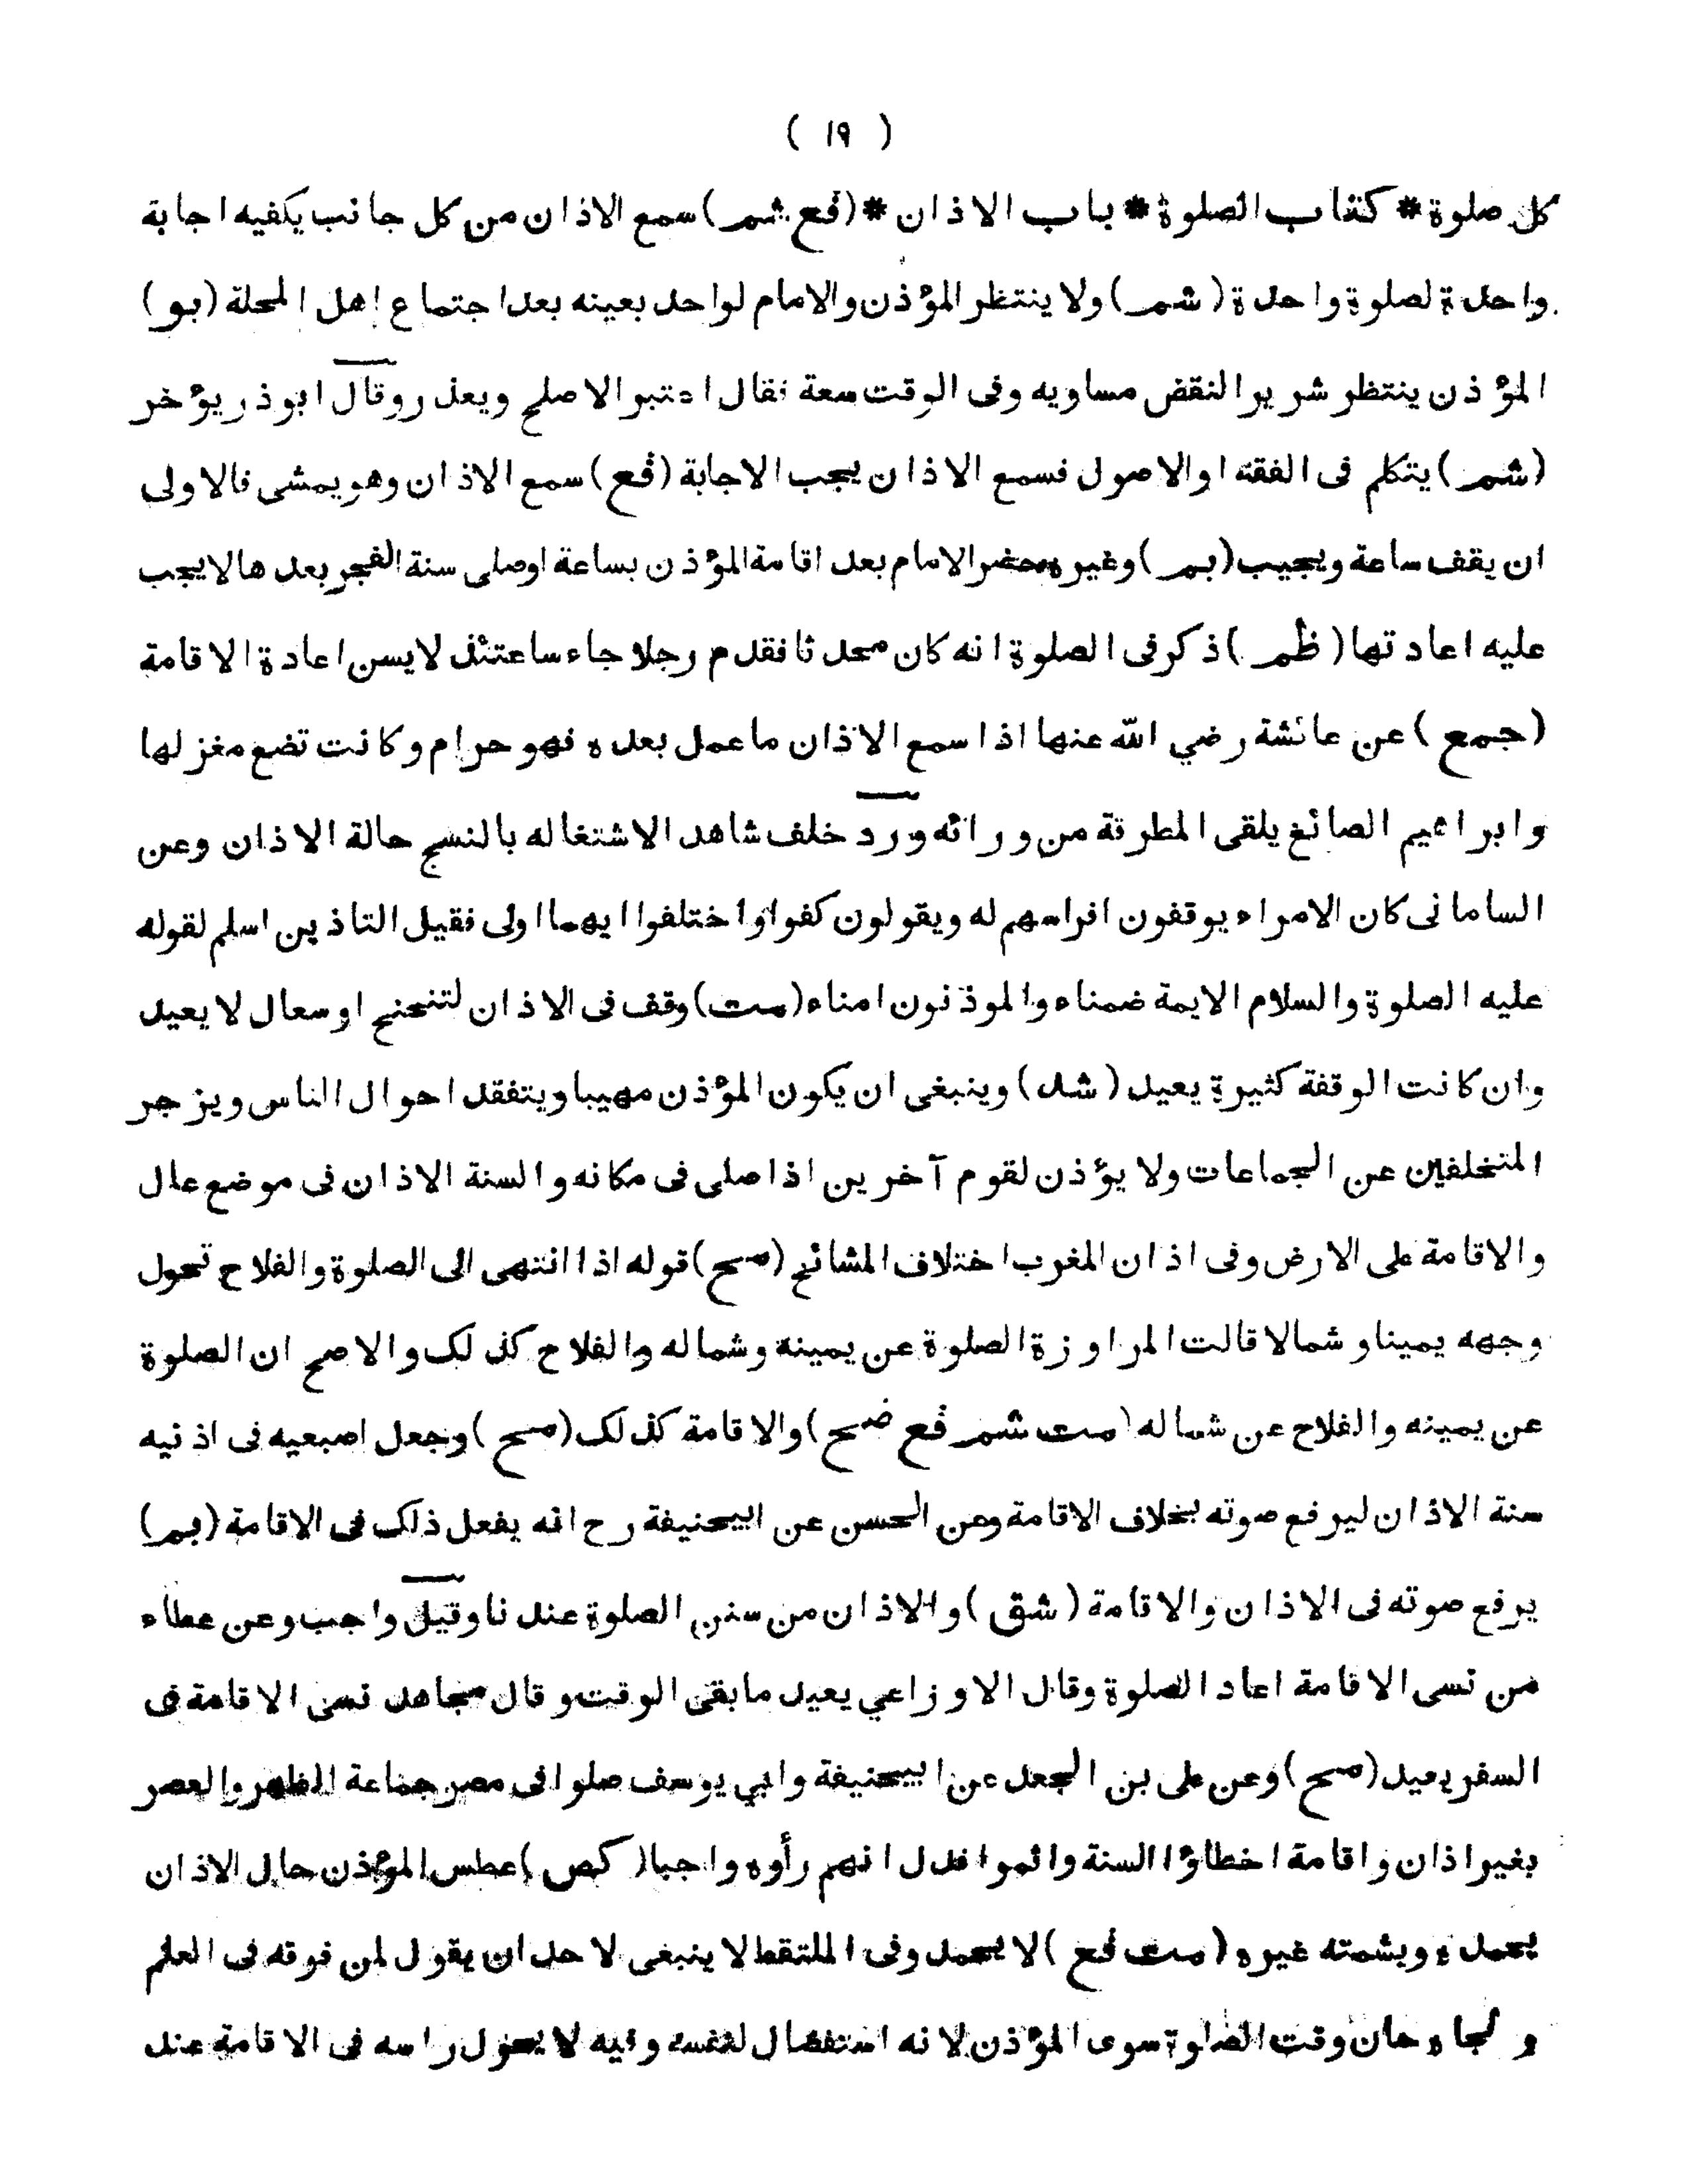 ( ١٩ )
كل صلوة * كتاب الصلوة * باب الاذان * (فع شم) سمع الاذان من كل جانب يكفيه اجابة
واحدة لصلوة واحدة (شم) ولا ينتظر المؤذن والامام لواحد بعينه بعد اجتماع اهل المحلة (بو)
المؤذن ينتظر شريرا لنقض مساويه وفى الوقت سعة فقال اعتبر الاصلح ويعذر وقال ابوذر يؤخر
(شم) يتكلم فى الفقه او الاصول فسمع الاذان يجب الاجابة (فع) سمع الاذان وهو يمشى فالاولى
ان يقف ساعة ويجيب (بم) وغيره حضر الامام بعد اقامة المؤذن بساعة اوصلى سنة الفجر بعدها لا يجب
عليه اعادتها (ظم) ذكر فى الصلوة انه كان محدثا فقدم رجلا جاء ساعتئذ لا يسن اعادة الاقامة
(جمع) عن عائشة رضي الله عنها اذا سمع الاذان ما عمل بعده فهو حرام وكانت تضع مغزلها
وابراهيم الصائغ يلقى المطرقة من ورائه ورد خلف شاهد الاشتغاله بالنسج حالة الاذان وعن
السامانى كان الامراء يوقفون افراسهم له ويقولون كفوا واختلفوا ايهما اولى فقيل التاذين اسلم لقوله
عليه الصلوة والسلام الايمة ضمناء والموذنون امناء (ست) وقف فى الاذان لتنحنح اوسعال لا يعيد
وان كانت الوقفة كثيرة يعيد (شد) وينبغى ان يكون المؤذن مهيبا ويتفقد احوال الناس ويزجر
المتخلفين عن الجماعات ولا يؤذن لقوم آخرين اذا صلى فى مكانه والسنة الاذان فى موضع عال
والاقامة على الارض وفى اذان المغرب اختلاف المشائخ (صح) قوله اذا انتهى الى الصلوة والفلاح تحول
وجهه يمينا وشمالا قالت المراوزة الصلوة عن يمينه وشماله والفلاح كذلك والاصح ان الصلوة
عن يمينه والفلاح عن شماله (ست شم فع ضح) والاقامة كذلك (صح) وجعل اصبعيه فى اذنيه
سنة الاذان ليرفع صوته بخلاف الاقامة وعن الحسن عن ابيحنيفة رح انه يفعل ذلك فى الاقامة (بم)
يرفع صوته فى الاذان والاقامة (شق) والاذان من سنن الصلوة عندنا وقيل واجب وعن عطاء
من نسى الاقامة اعاد الصلوة وقال الاوزاعي يعيد ما بقى الوقت وقال مجاهد نسى الاقامة فى
السفر يعيد (صح) وعن على بن الجعد عن ابيحنيفة وابي يوسف صلوا فى مصر جماعة الظهر والعصر
بغير اذان واقامة اخطاؤا السنة واثموا فدل انهم رأوه واجبا (كص) عطس المؤذن حال الاذان
يحمده ويشمته غيره (ست فع) لا يحمد وفى الملتقط لا ينبغى لاحد ان يقول لمن فوقه فى العلم
والجاه حان وقت الصلوة سوى المؤذن لانه استفضال لنفسه وفيه لا يحول راسه فى الاقامة عند